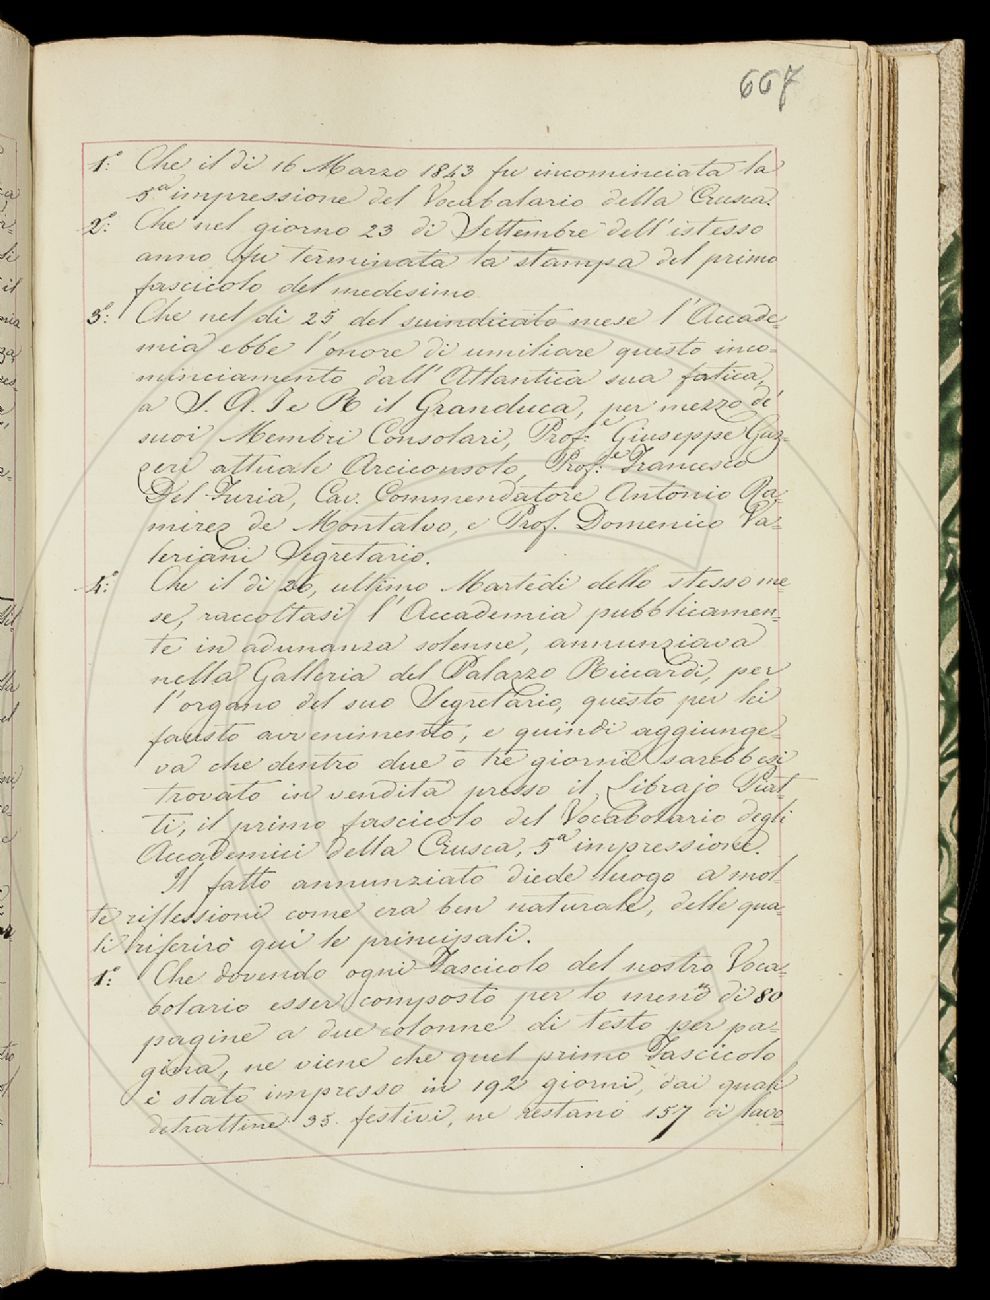 667
1.° Che il dì 16 Marzo 1843 fu incominciata la
5.a impressione del Vocabolario della Crusca.
2.° Che nel giorno 23 di Settembre dell'istesso
anno fu terminata la stampa del primo
fascicolo del medesimo
3.° Che nel dì 25 del suindicato mese l'Accade-
mia ebbe l'onore di umiliare questo inco-
minciamento dall'Atlantica sua fatica,
a S. A. I e R il Granduca, per mezzo de'
suoi Membri Consolari, Prof.e Giuseppe Gaz-
zeri attuale Arciconsolo, Prof.e Francesco
Del Furia, Cav. Commendatore Antonio Ra-
mirez de Montalvo, e Prof. Domenico Va-
leriani Segretario.
4.° Che il dì 26, ultimo Martedì dello stesso me
se, raccoltasi l'Accademia pubblicamen-
te in adunanza solenne, annunziava
nella Galleria del Palazzo Riccardi, per
l'organo del suo Segretario, questo per lei
fausto avvenimento; e quindi aggiunge-
va che dentro due o tre giorni sarebbesi
trovato in vendita presso il Librajo Piat-
ti, il primo fascicolo del Vocabolario degli
Accademici della Crusca, 5.a impressione.
Il fatto annunziato diede luogo a mol
te riflessioni come era ben naturale, delle qua-
li riferirò qui le principali.
1.° Che dovendo ogni Fascicolo del nostro Voca-
bolario esser composto per lo meno di 80
pagine a due colonne di testo per pa-
gina, ne viene che quel primo Fascicolo
è stato impresso in 192 giorni, dai quali
detrattine 35. festivi, ne restano 157 di lavo-